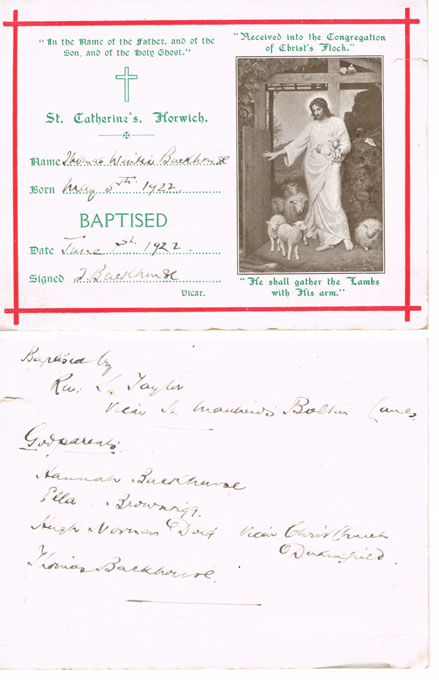 "In the Name of the Father, and of the
Son, and of the Holy Ghost."
St. Catherine's, Horwich.
Name Thomas Backhouse
Born May 5th 1922
BAPTISED
Date June 1st 1922
Signed T. Backhouse
Vicar.
"Received into the Congregation
of Christ's Flock."
"He shall gather the Lambs
with His arm."
Baptised by
Rev. Taylor
Vicar St. Bolton Lancs
Godparents:
Hannah Backhouse
Ella Brownrigg.
Hugh Norman Doig Vicar Christ Church
Dukinfield.
Thomas Backhouse.